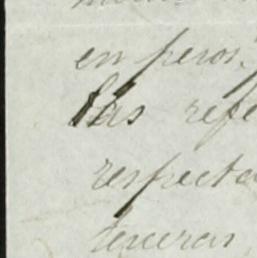 en peros.
las refe
respecta
terceras